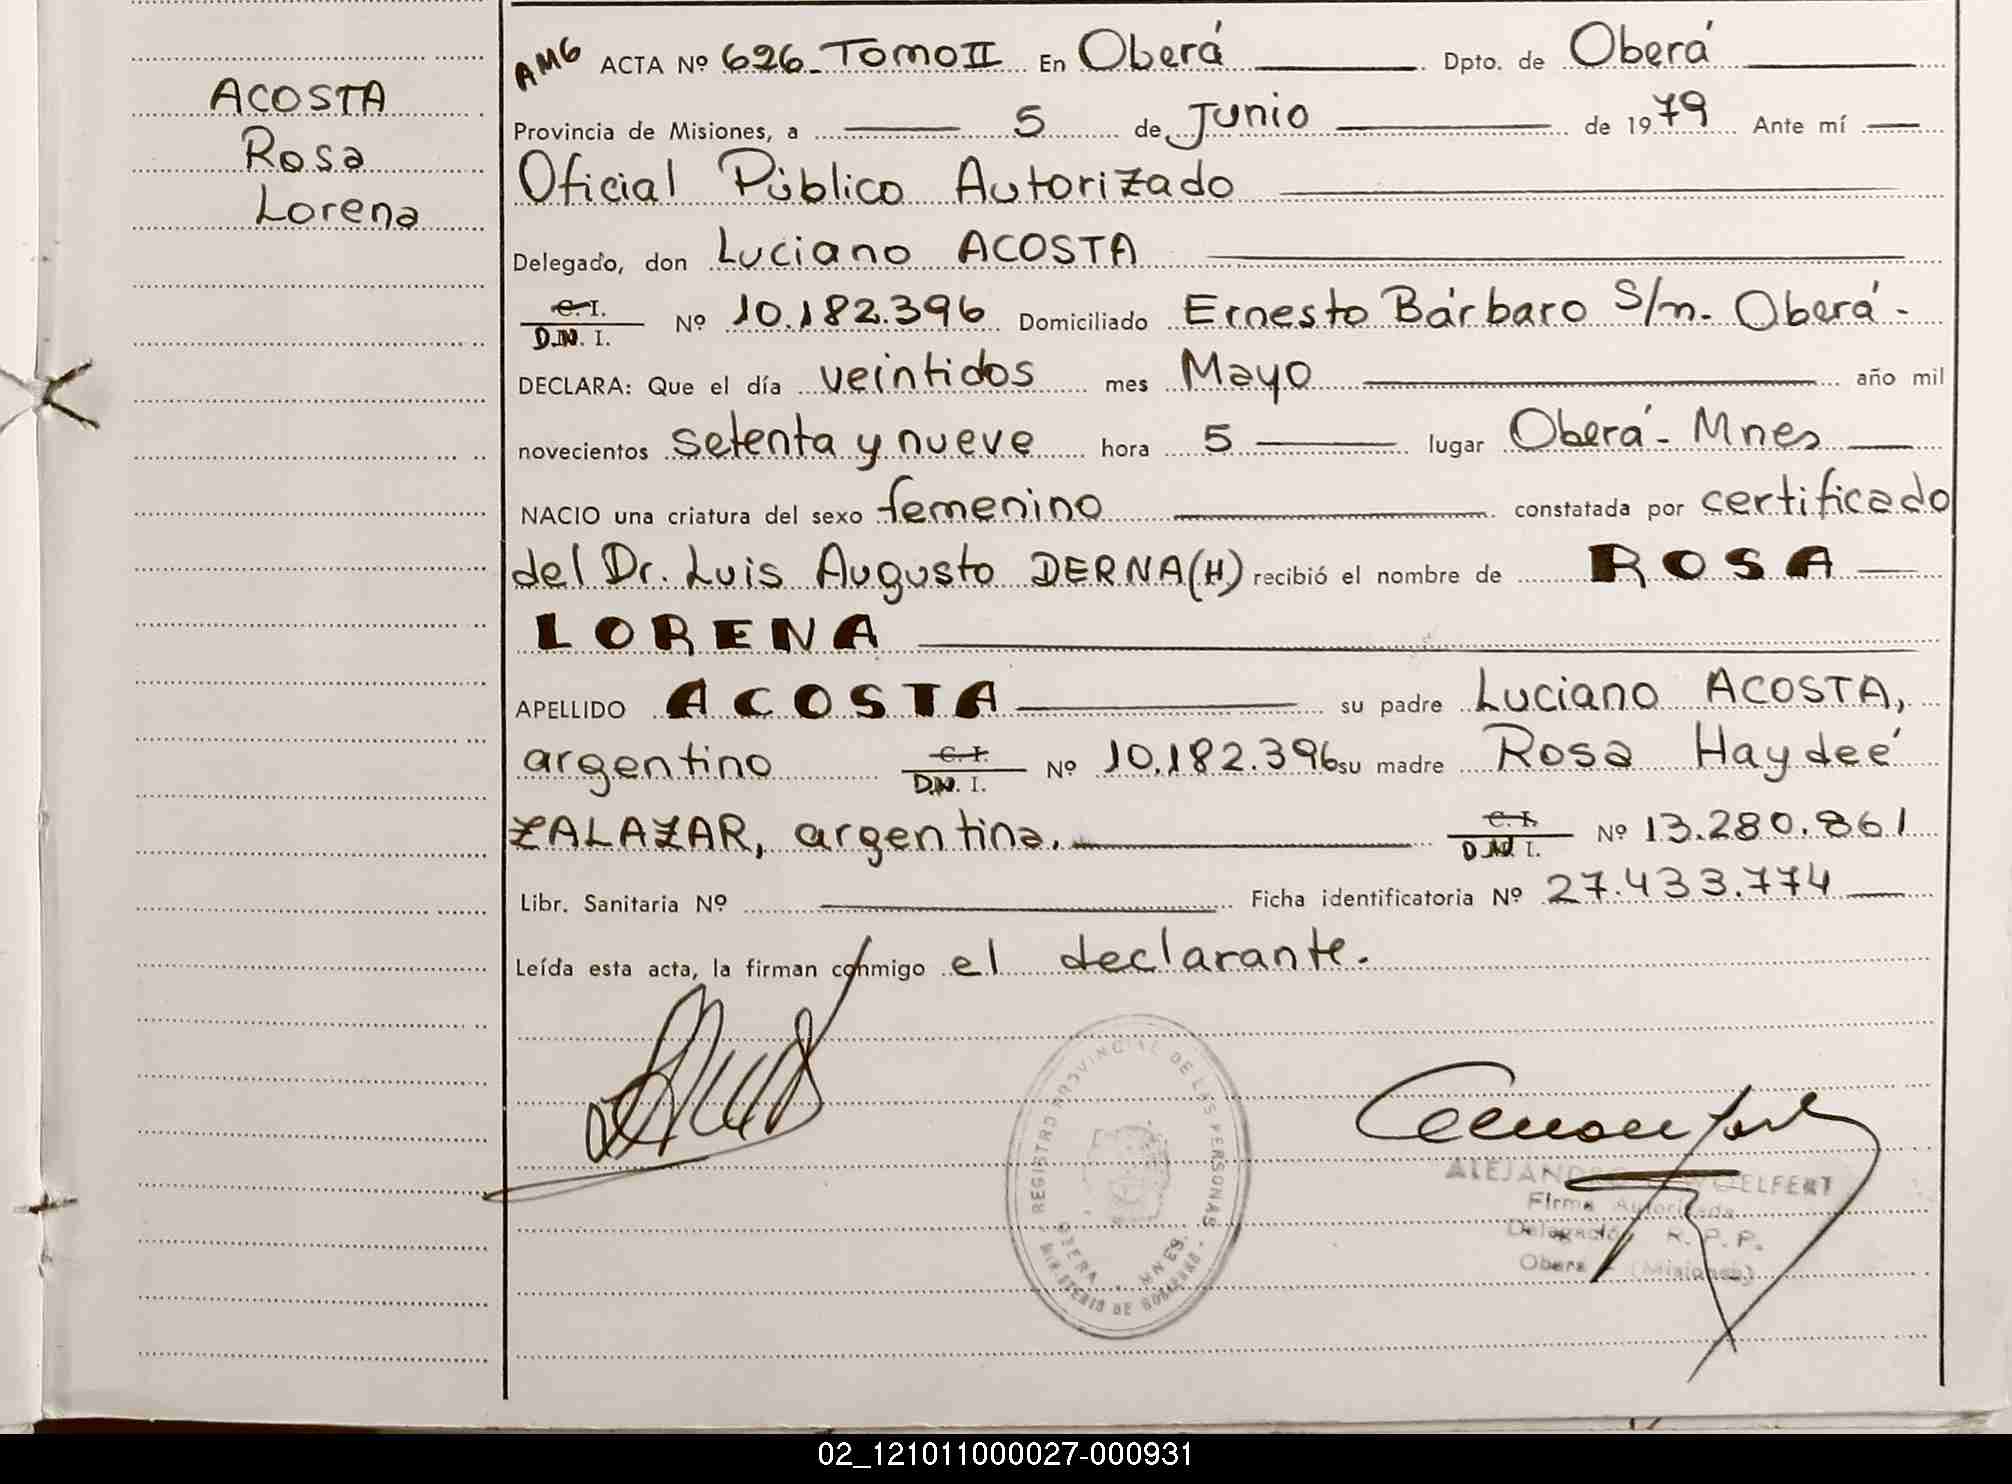 ACOSTA
Rosa
Lorena
AMG ACTA Nº 626 - TOMO II En Oberá Dpto. de Oberá
Provincia de Misiones, a 5 de Junio de 1979 Ante mí
Oficial Público Autorizado
Delegado, don Luciano ACOSTA
C. I. D.N. I. Nº 10.182.396 Domiciliado Ernesto Bárbaro S/n. Oberá -
DECLARA: Que el día veintidos mes Mayo año mil
novecientos setenta y nueve hora 5 lugar Oberá - Mnes
NACIO una criatura del sexo femenino constatada por certificado
del Dr. Luis Augusto DERNA (H) recibió el nombre de ROSA
LORENA
APELLIDO ACOSTA su padre Luciano ACOSTA,
argentino C. I. D.N. I. Nº 10.182.396 su madre Rosa Haydeé
ZALAZAR, argentina. C. I. D.N. I. Nº 13.280.861
Libr. Sanitaria Nº Ficha identificatoria Nº 27.433.774
Leída esta acta, la firman conmigo el declarante.
REGISTRO PROVINCIAL DE LAS PERSONAS
OBERA - MNES.
MINISTERIO DE GOBIERNO
ALEJANDRO WOELFERT
Firma Autorizada
Delegación R. P. P.
Obera - (Misiones)
02_121011000027-000931